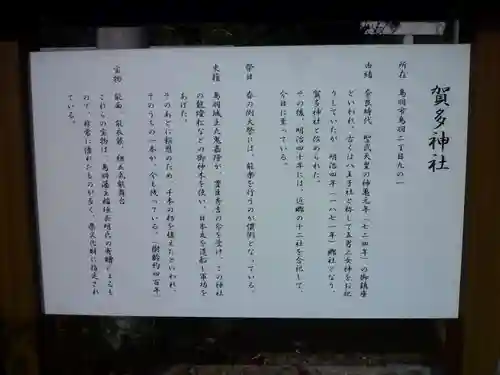 賀多神社
所在 鳥羽市鳥羽二丁目九の一
由緒 奈良時代、聖武天皇の神亀元年(七二四年)の御鎮座
といわれ、古くは八王子社と称して五男三女神をお祀
りしていたが、明治四年(一八七一年)郷社となり、
賀多神社と改められた。
その後、明治四十年には、近郷の十二社を合祀して、
今日に至っている。
祭日 春の例大祭には、能楽を行うのが慣例となっている。
史積 鳥羽城主九鬼嘉隆が、豊臣秀吉の命を受け、この神社
の龍燈松などの御神木を使い、日本丸を造船し軍功を
あげた。
そのあとに報恩のため、千本の杉を植えたといわれ、
そのうちの一本が、今も残っている。(樹齢約四百年)
宝物 能面 能衣裳 組立式能舞台
これらの宝物は、鳥羽藩主稲垣長明氏の寄贈によるも
ので、非常に優れたものが多く、県文化財に指定され
ている。